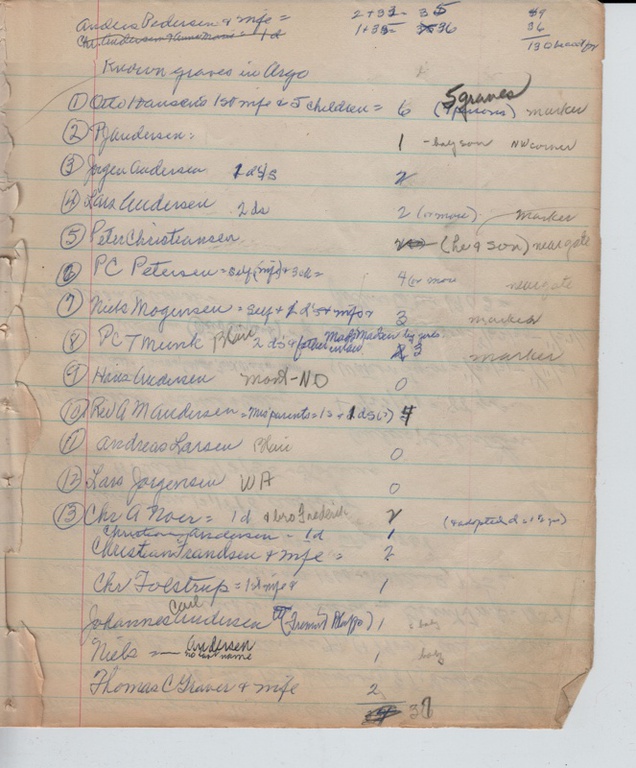 Anders Pedersen & wife = 2+33- 35 99
Chr. Andersen & Anna Marie = 1d 1+35= 36 36
130
Known graves in Argo
① Otto Hansen's 1st wife & 5 children = 6 5 graves (7 persons) marker
② PJ Andersen: 1 - baby son NW corner
③ Jorgen Andersen 1 d & s 2
④ Lars Andersen 2 ds 2 (or more) marker
⑤ Peter Christiansen (he & son) near gate
⑥ PC Petersen = self (wife) + 4 or more near gate
⑦ Niels Mogensen = self + 1 d's + wife 3 marker
⑧ PC T Munk Blair 2 ds & father in law Mads Madsen by 3 marker
⑨ Hans Andersen ND 0
⑩ Rev A M Andersen = parents = 1s + 1 ds (?) 4
⑪ Andreas Larsen Blair 0
⑫ Lars Jorgensen WA 0
⑬ Chr A Noer = 1d & bro Frederik 2 (& adopted d = 1 )
Christian Andersen - 1d 1
Christian Frandsen & wife = 2
Chr Tolstrup = 1st wife 1
Johannes Carl Andersen (Fremont ) 1 baby
Niels — Andersen no last name 1 baby
Thomas C Graver & wife 2
37